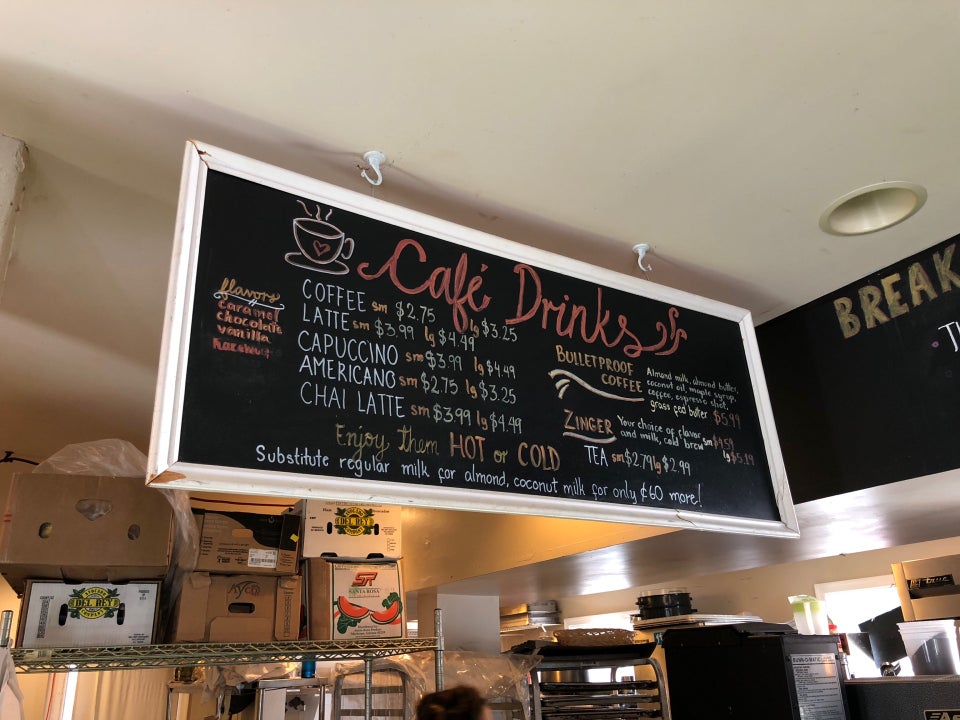 Café Drinks
flavors
caramel
chocolate
vanilla
hazelnut
COFFEE sm $2.75 lg $3.25
LATTE sm $3.99 lg $4.49
CAPUCCINO sm $3.99 lg $4.49
AMERICANO sm $2.75 lg $3.25
CHAI LATTE sm $3.99 lg $4.49
BULLETPROOF
COFFEE
Almond milk, almond butter,
coconut oil, maple syrup,
coffee, espresso shot,
grass fed butter $5.99
ZINGER
Your choice of flavor
and milk, cold brew sm $4.59
lg $5.19
TEA sm $2.79 lg $2.99
Enjoy them HOT or COLD
Substitute regular milk for almond, coconut milk for only ¢60 more!
BREAK
DEL REY
DEL REY
AYCO
SR
SANTA ROSA
BUNN-O-MATIC